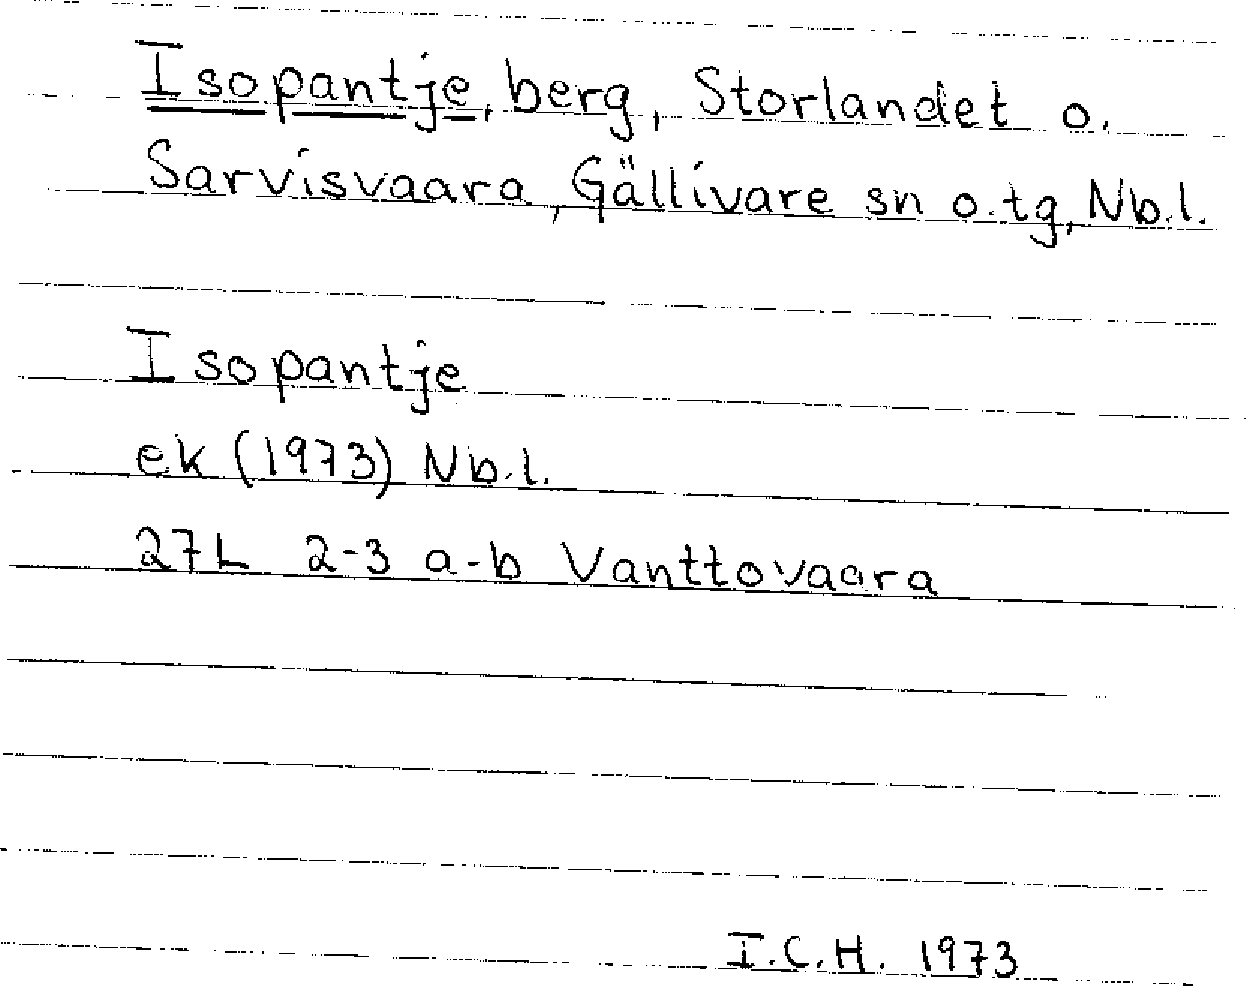 Isopantje, berg, Storlandet o.
Sarvisvaara, Gällivare sn o. tg, Nb.l.
Isopantje
ek (1973) Nb.l.
27L 2-3 a-b Vanttovaara
I.C.H. 1973